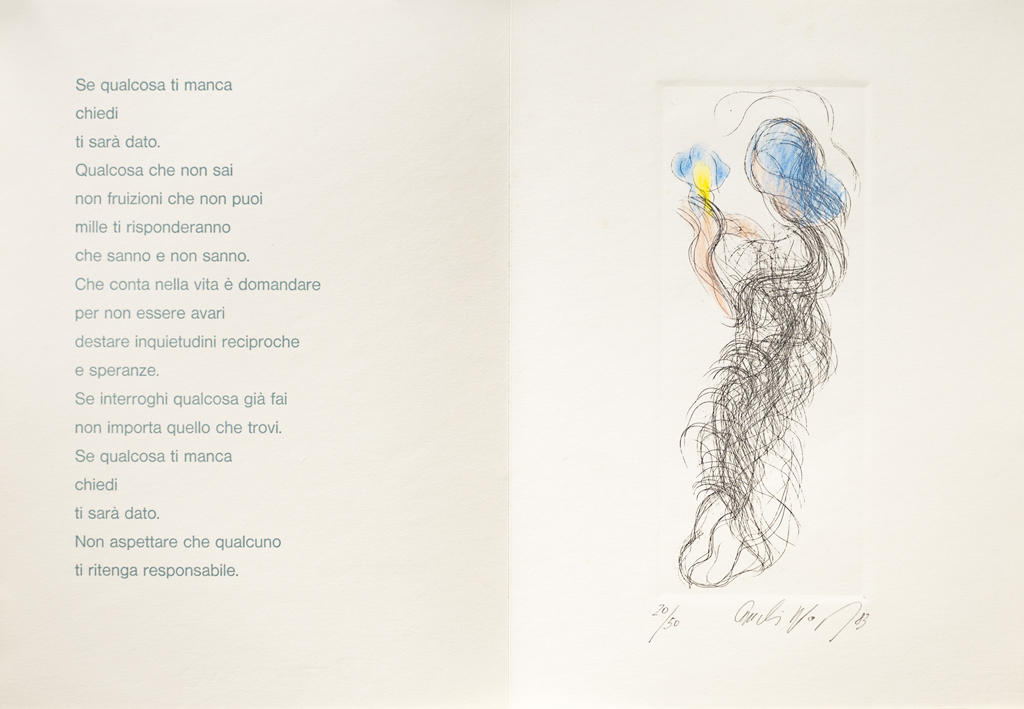 Se qualcosa ti manca
chiedi
ti sarà dato.
Qualcosa che non sai
non fruizioni che non puoi
mille ti risponderanno
che sanno e non sanno.
Che conta nella vita è domandare
per non essere avari
destare inquietudini reciproche
e speranze.
Se interroghi qualcosa già fai
non importa quello che trovi.
Se qualcosa ti manca
chiedi
ti sarà dato.
Non aspettare che qualcuno
ti ritenga responsabile.
20/50
83